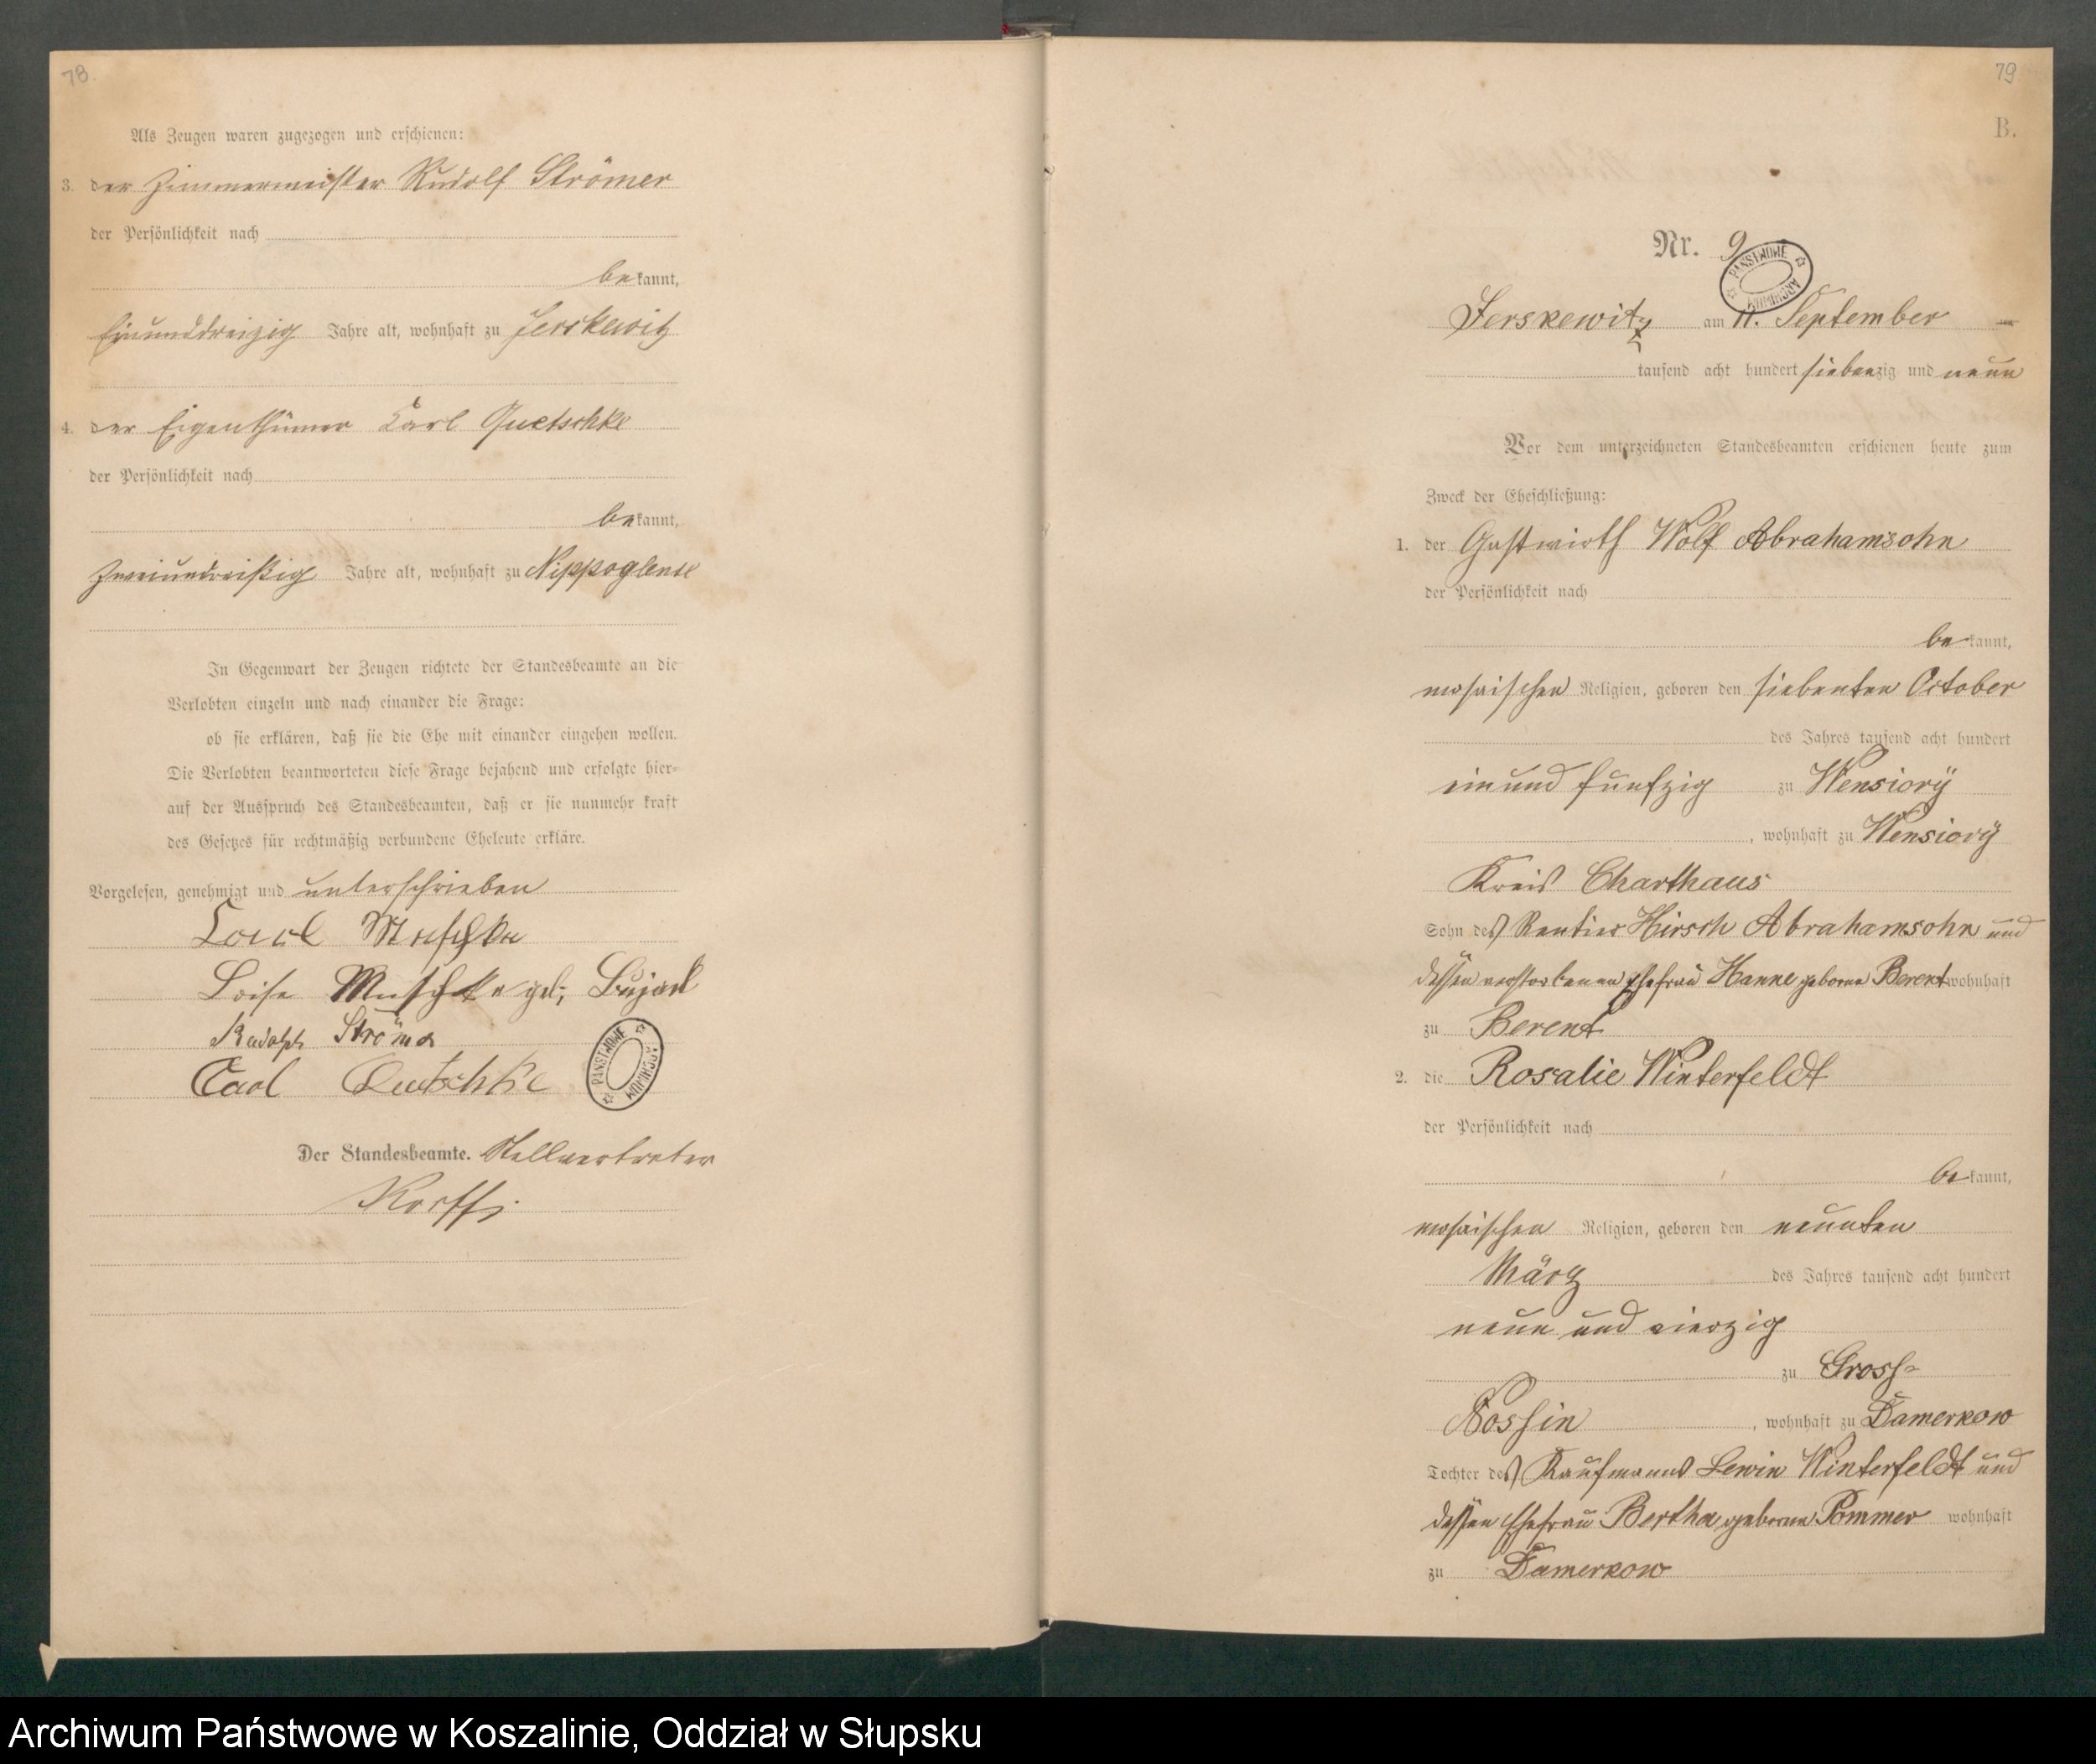 78.
Als Zeugen waren zugezogen und erschienen:
3. der Zimmermeister Rudolf Strömer
der Persönlichkeit nach
bekannt,
Einunddreizig Jahre alt, wohnhaft zu Jerskewitz
4. der Eigenthümer Carl Quetschke
der Persönlichkeit nach
bekannt,
zweiundreißig Jahre alt, wohnhaft zu Nippoglense
In Gegenwart der Zeugen richtete der Standesbeamte an die
Verlobten einzeln und nach einander die Frage:
ob sie erklären, daß sie die Ehe mit einander eingehen wollen.
Die Verlobten beantworteten diese Frage bejahend und erfolgte hier-
auf der Ausspruch des Standesbeamten, daß er sie nunmehr kraft
des Gesetzes für rechtmäßig verbundene Eheleute erkläre.
Vorgelesen, genehmigt und unterschrieben
Carl
geb;
Rudolph Strömer
Carl Quetschke
PAŃSTWOWE ARCHIWUM
Der Standesbeamte. Stellvertreter
79
B.
Nr. 9
PAŃSTWOWE ARCHIWUM
Jerskewitz am 11. September
tausend acht hundert siebenzig und neun
Vor dem unterzeichneten Standesbeamten erschienen heute zum
Zweck der Eheschließung:
1. der Gastwirth Wolf Abrahamsohn
der Persönlichkeit nach
bekannt,
mosaischen Religion, geboren den siebenten October
des Jahres tausend acht hundert
ein und fünfzig zu Wensiory
, wohnhaft zu Wensiory
Kreis Charthaus
Sohn des Rentier Hirsch Abrahamsohn und
dessen verstorbenen Ehefrau Hanne geborne Berent wohnhaft
zu Berent
2. die Rosalie Winterfeldt
der Persönlichkeit nach
bekannt,
mosaischen Religion, geboren den neunten
März des Jahres tausend acht hundert
neun und vierzig
zu Gross-
Nossin , wohnhaft zu Damerkow
Tochter des Kaufmanns Lewin Winterfeldt und
dessen Ehefrau Bertha geborne Pommer wohnhaft
zu Damerkow
Archiwum Państwowe w Koszalinie, Oddział w Słupsku